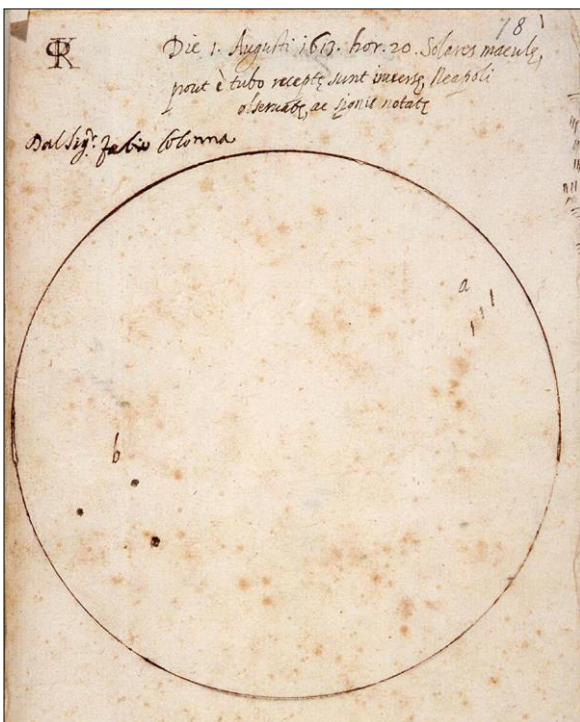 78
Die 1. Augusti 1613. hor. 20. Solares maculę,
prout è tubo receptę sunt inversę, Neapoli
observatę, ac signis notatę
Dal Sig.r Fabio Colonna
a
b